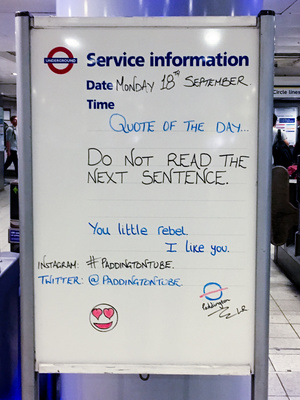 UNDERGROUND
Service information
Date MONDAY 18TH SEPTEMBER
Time
QUOTE OF THE DAY...
DO NOT READ THE
NEXT SENTENCE.
You little rebel.
I like you.
INSTAGRAM: #PADDINGTONTUBE.
TWITTER: @PADDINGTONTUBE.
Paddington
Circle lines